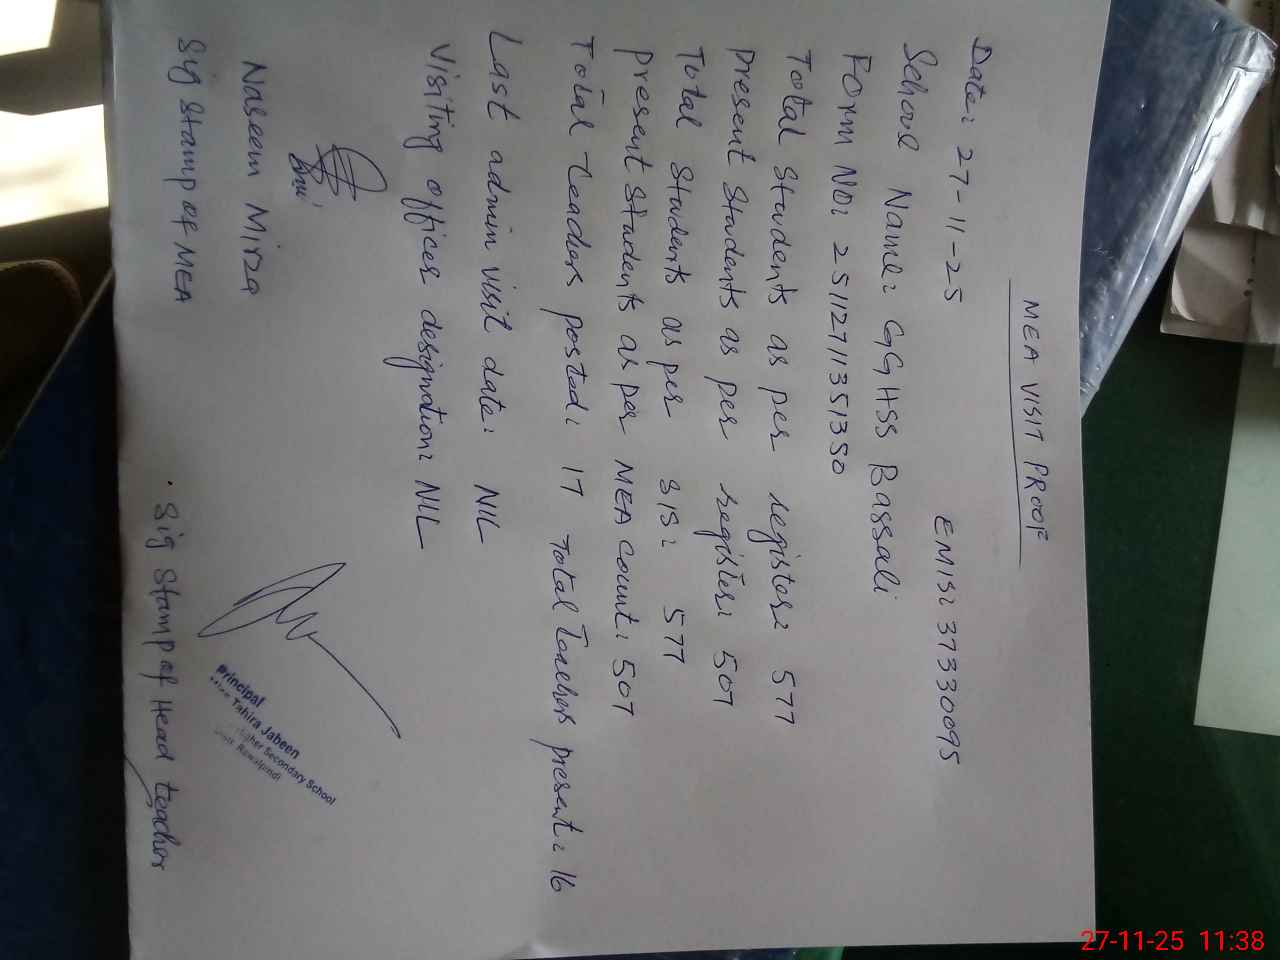 MEA VISIT PROOF
Date: 27-11-25 EMIS: 37330095
School Name: GGHSS Bassali
FORM NO: 25112711351350
Total Students as per register: 577
Present Students as per register: 507
Total Students as per SIS: 577
Present Students as per MEA count: 507
Total Teachers posted: 17 Total Teachers present: 16
Last admin visit date: NIL
Visiting officer designation: NIL
Naseem Mirza
Sig Stamp of MEA
Principal
Tahira Jabeen
Higher Secondary School
Rawalpindi
Sig Stamp of Head teacher
27-11-25 11:38